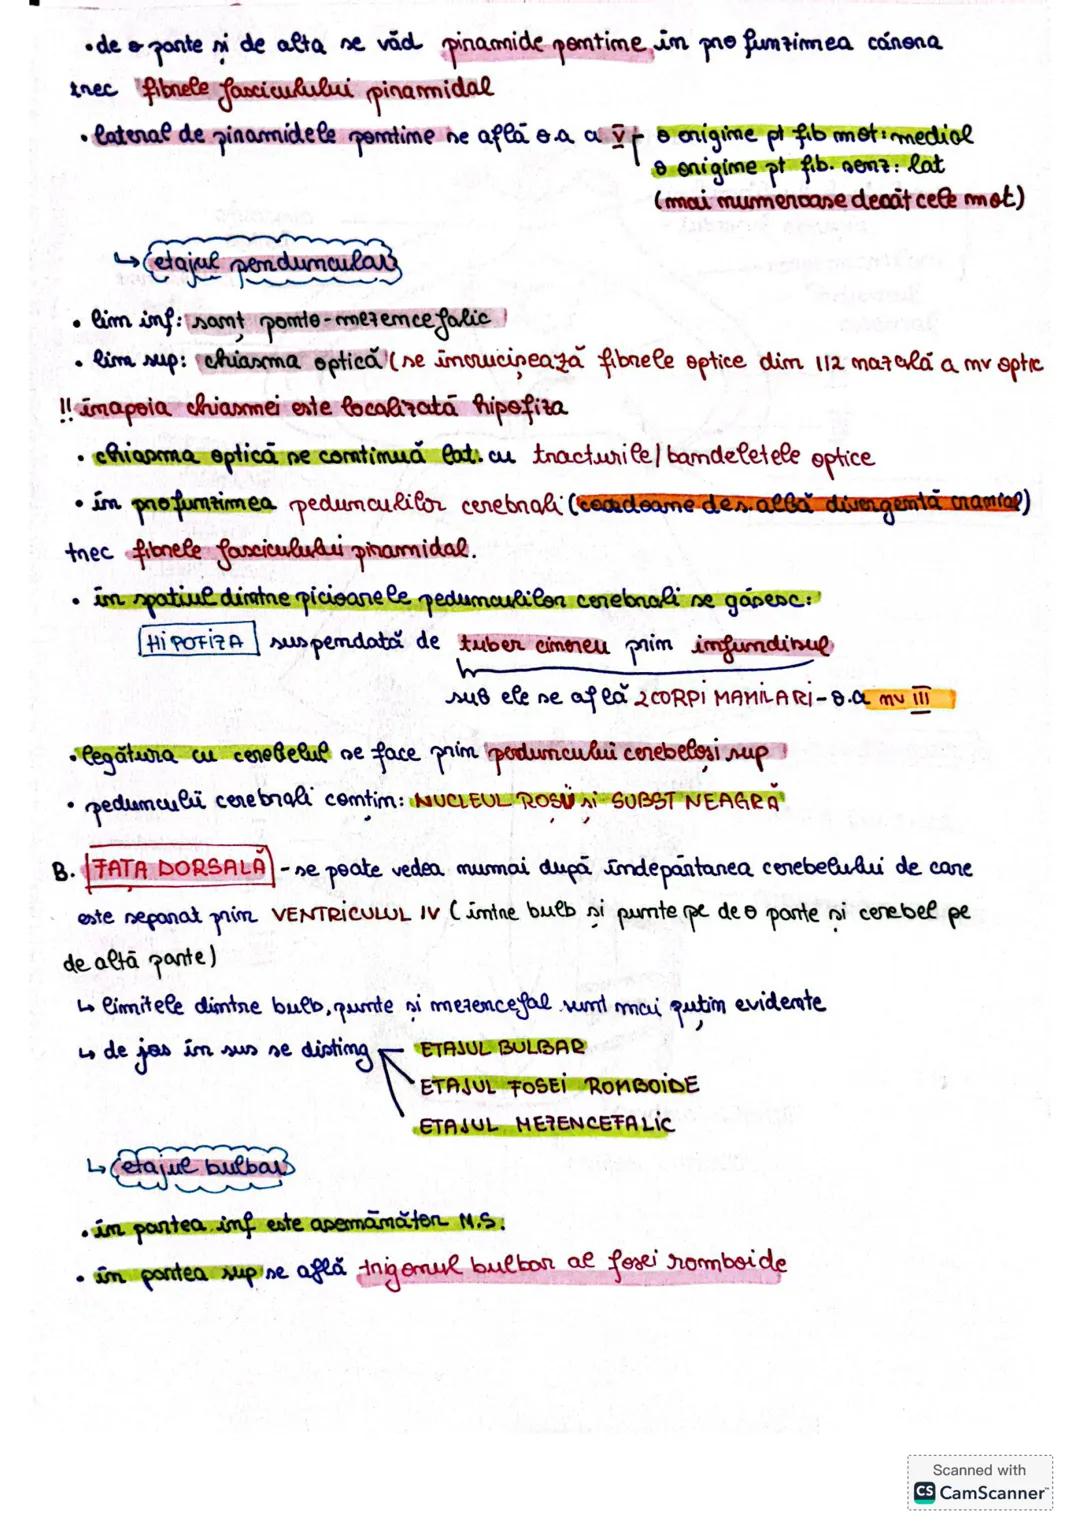 •de o parte și de alta se văd piramide pontine, în profunzimea cărora
trec fibrele fasciculului piramidal
• lateral de piramidele pontine se află o.a a V o origine pt fib mot: medial
o origine pt fib. senz: lat
(mai numeroase decât cele mot)
↳ etajul peduncular
• lim inf: șanț ponto-mezencefalic
• lim sup: chiasma optică (se încrucișează fibrele optice din 1/2 nazală a nv optic
!! înapoia chiasmei este localizată hipofiza
• chiasma optică se continuă lat. cu tracturile/bandeletele optice
• în profunzimea pedunculilor cerebrali (cordoane de s. albă divergentă cranial)
trec fibrele fasciculului piramidal.
• în spatiul dintre picioarele pedunculilor cerebrali se găsesc:
HIPOFIZA suspendată de tuber cinereu prin infundibul
sub ele se află 2 CORPI MAMILARI - o.a nv III
• legătura cu cerebelul se face prin pedunculii cerebeloși sup
• pedunculii cerebrali conțin: NUCLEUL ROȘU și SUBST NEAGRĂ
B. FAȚA DORSALĂ - se poate vedea numai după îndepărtarea cerebelului de care
este separat prin VENTRICULUL IV (între bulb și punte pe de o parte și cerebel pe
de altă parte)
↳ limitele dintre bulb, punte și mezencefal sunt mai puțin evidente
↳ de jos în sus se disting ETAJUL BULBAR
ETAJUL FOSEI ROMBOIDE
ETAJUL MEZENCEFALIC
↳ etajul bulbar
• în partea inf este asemănător M.S.
• în partea sup se află trigonul bulbar al fosei romboide
Scanned with
CS CamScanner